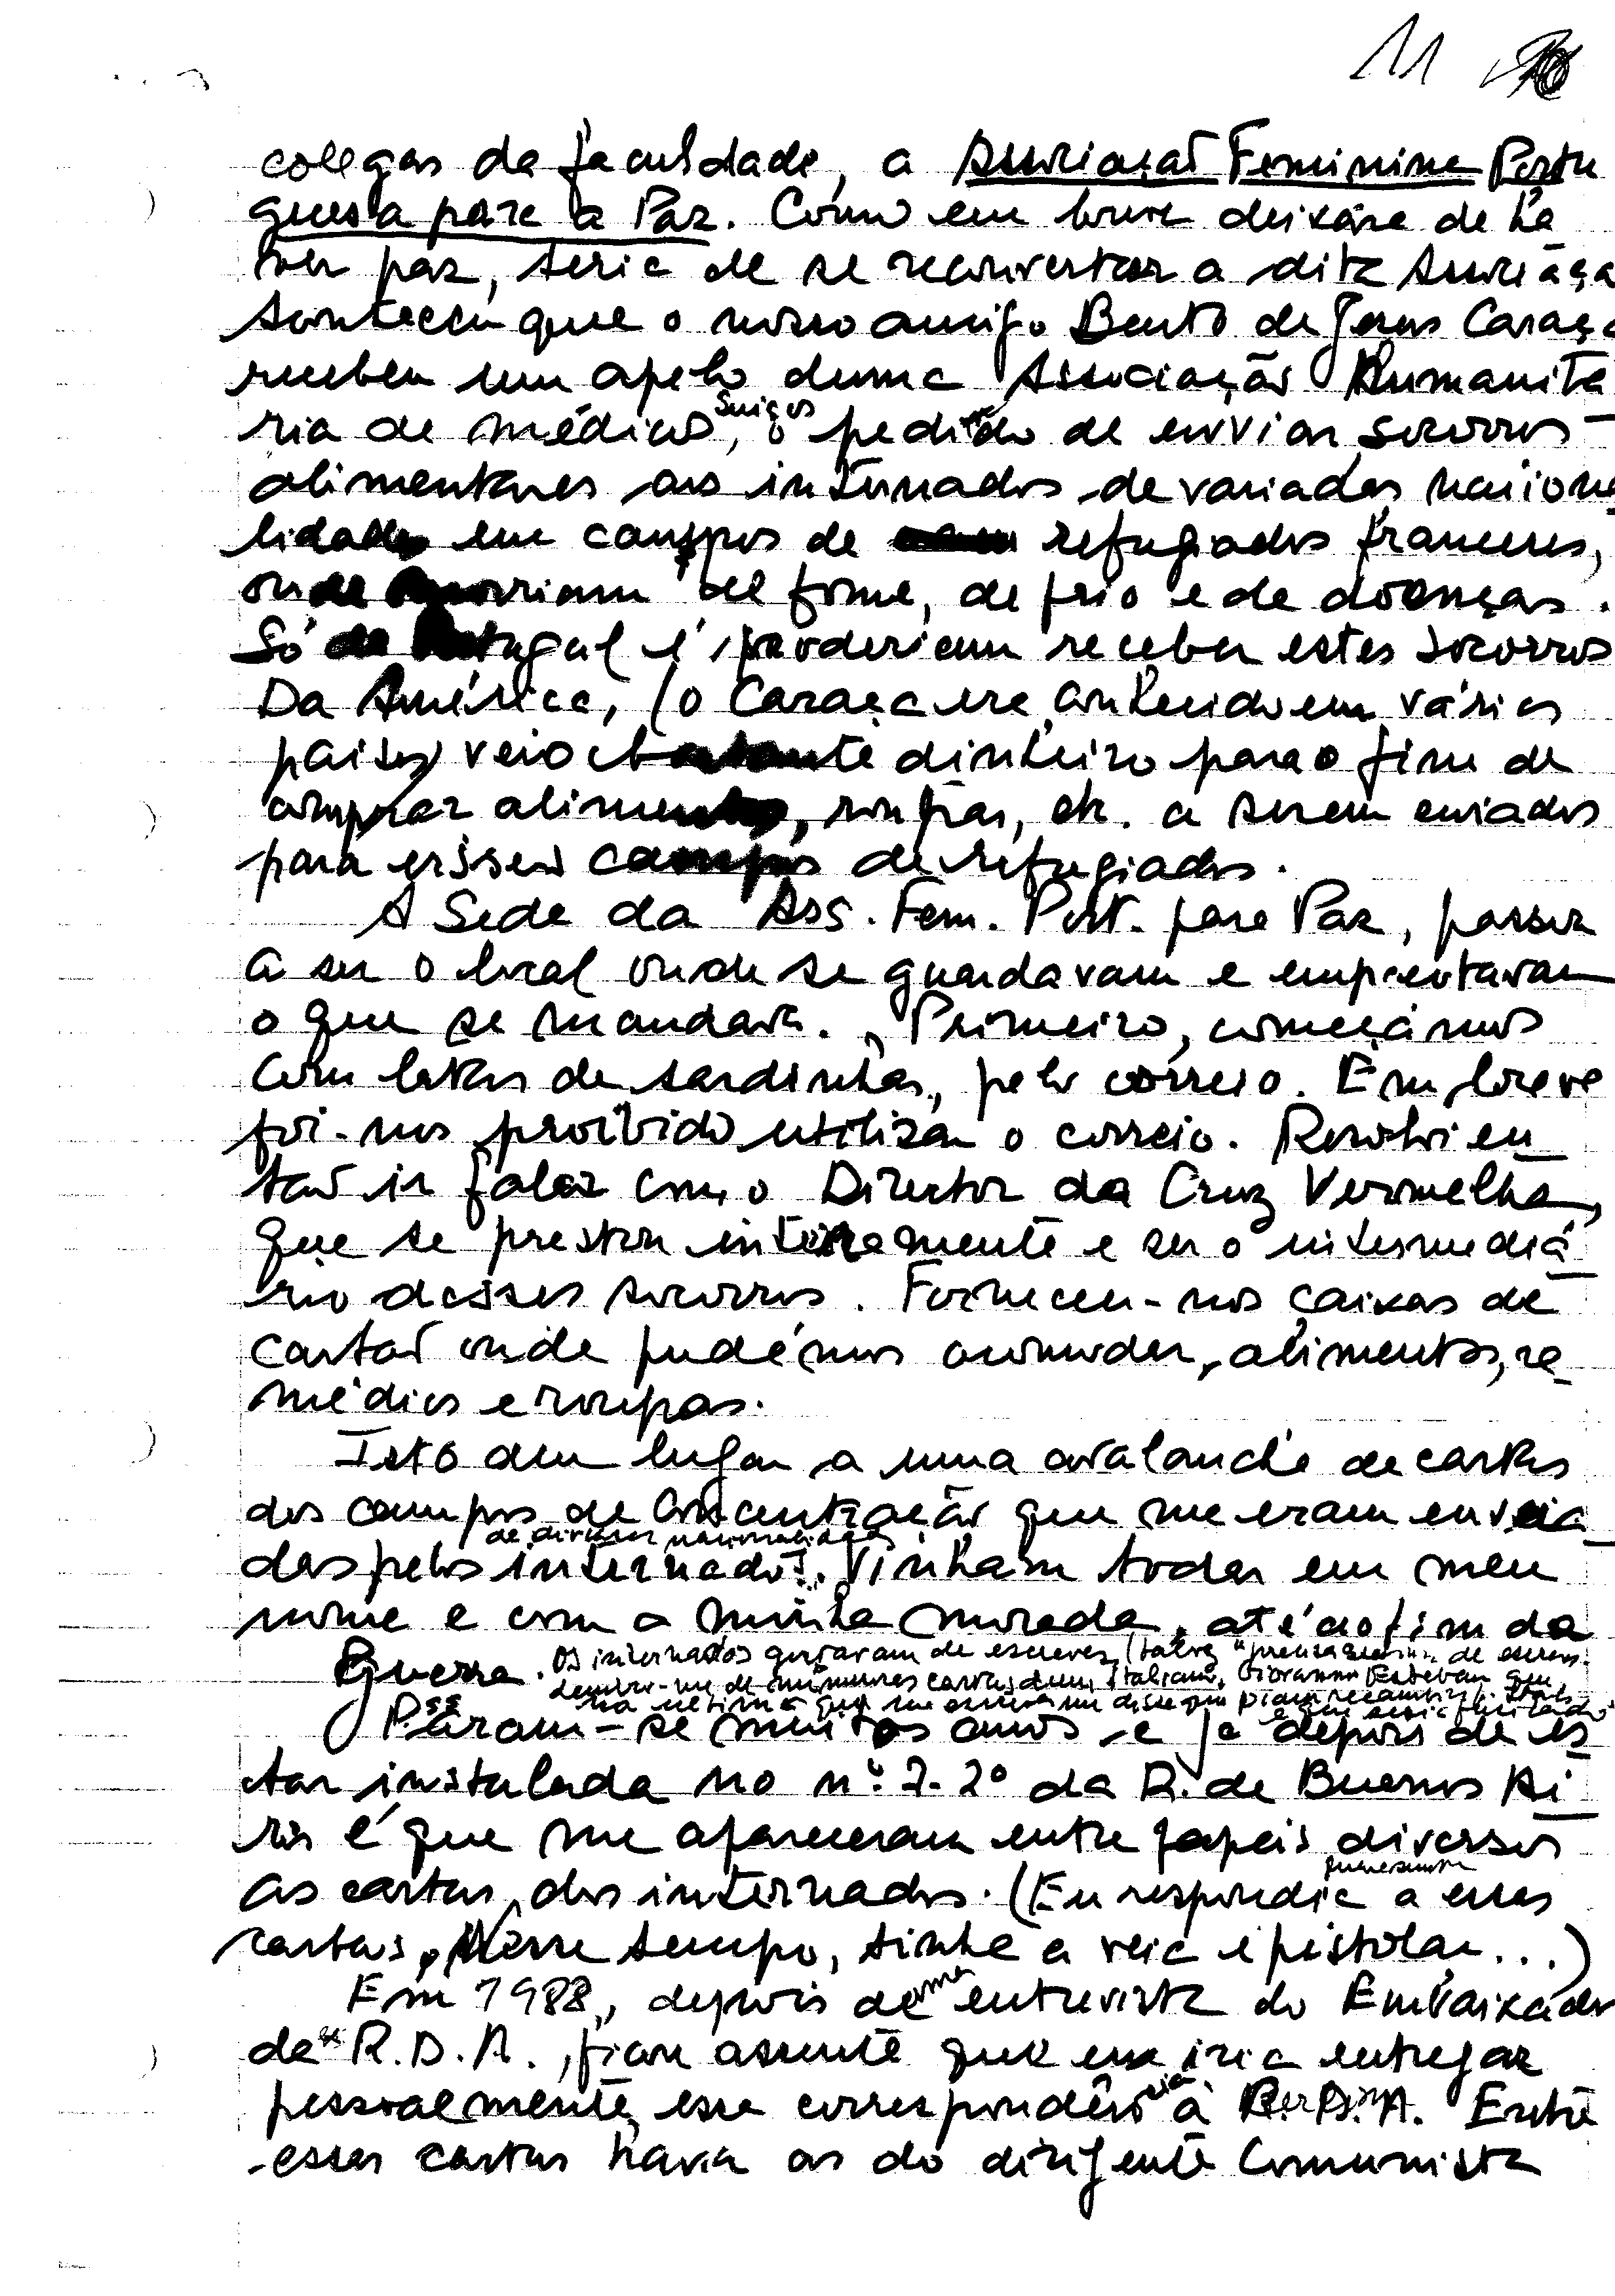 11
colegas da faculdade, a Associação Feminina Portu
guesa para a Paz. Como em breve deixára de ha
ver paz, teria de se reconverter a dita Associaça
Aconteceu que o nosso amigo Bento de Jesus Caraça
recebeu um apelo duma Associação Humanitá
ria de médicos suiços, o pedido de enviar socorros
alimentares aos internados de variadas naciona
lidades em campos de refugiados franceses,
onde morriam de fome, de frio e de doenças.
Só de Portugal é poderiam receber estes socorros
Da América, (o Caraça era conhecido em vários
países) veio bastante dinheiro para o fim de
comprar alimentos, roupas, etc. a serem enviados
para esses campos de refugiados.
A Sede da Ass. Fem. Port. para Paz, passou
a ser o local onde se guardavam e empacotavam
o que se mandava. Primeiro, começámos
com latas de sardinhas, pelo correio. Em breve
foi-nos proíbido utilizar o correio. Resolvi en
tão ir falar com o Director da Cruz Vermelha,
que se prestou inteiramente e ser o intermediá
rio desses socorros. Forneceu-nos caixas de
cartão onde pudémos acomodar, alimentos, re
médios e roupas.
Isto deu lugar a uma avalanche de cartas
dos campos de concentração que me eram envia
das pelos internados de diversas nacionalidades. Vinham todas em meu
nome e com a minha morada, até ao fim da
Guerra. Os internados gostavam de escrever, (talvez precisassem de escrever.
Lembro-me de inúmeras cartas dum Italiano, Giovanni Esteban que
na ultima que me escreveu me disse que
Passaram-se muitos anos e já depois de es
tar instalada no nº 7-2º da R. de Buenos Ai
res é que me apareceram entre papeis diversos
as cartas dos internados. (Eu respondia a essas
cartas. Nesse tempo, tinha a veia epistolar...)
Em 1988, depois de uma entrevista do Embaixador
da R.D.A., ficou assente que eu iria entregar
pessoalmente essa correspondência à R.D.A. Entre
essas cartas havia as do dirigente Comunista